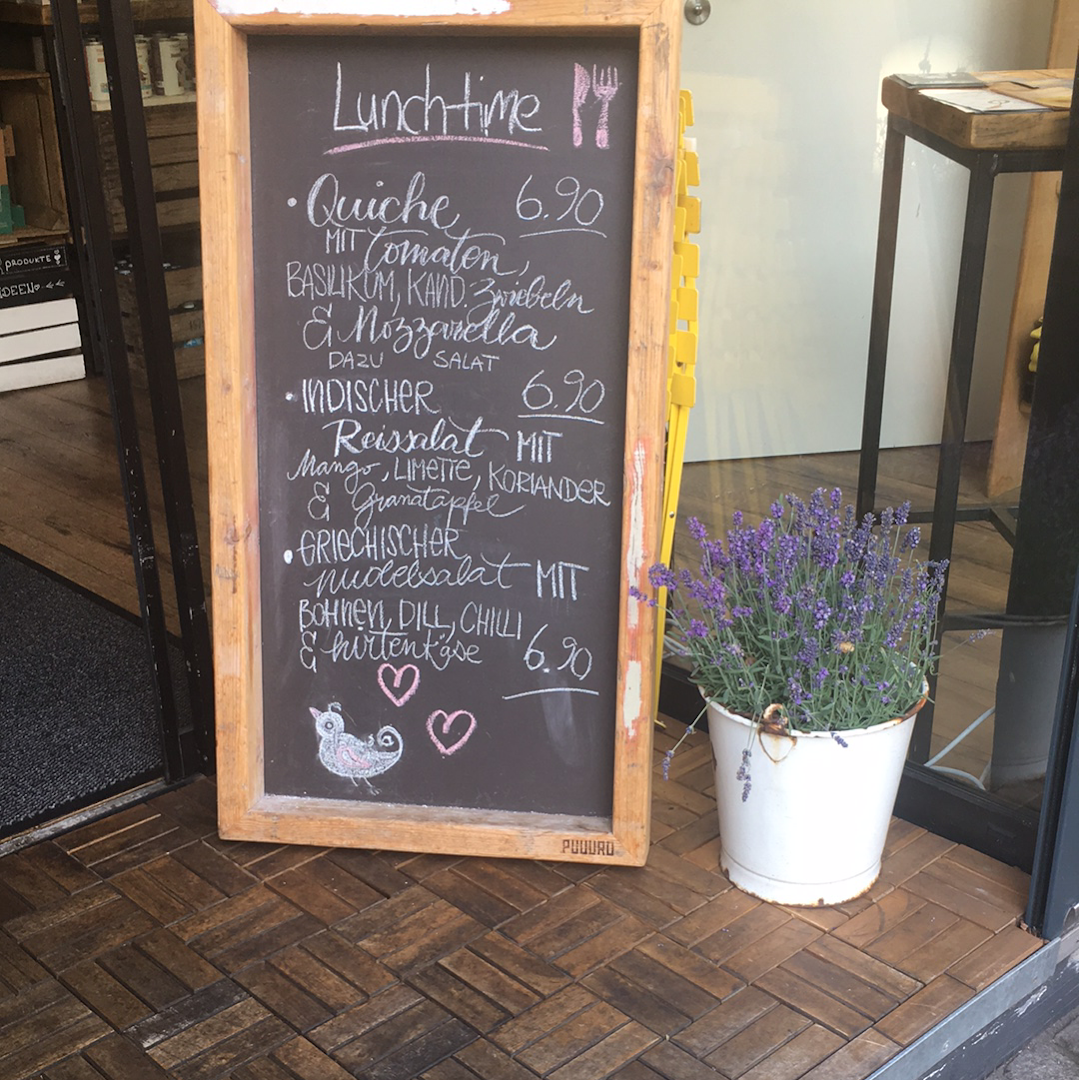 Lunchtime
• Quiche 6.90
MIT Tomaten,
BASILIKUM, KAND. Zwiebeln
& Mozzarella
DAZU SALAT
• INDISCHER 6.90
Reissalat MIT
Mango, LIMETTE, KORIANDER
& Granatapfel
• GRIECHISCHER
nudelsalat MIT
BOHNEN, DILL, CHILLI
& hirtenkäse 6.90
PUUURO
PRODUKTE
IDEEN